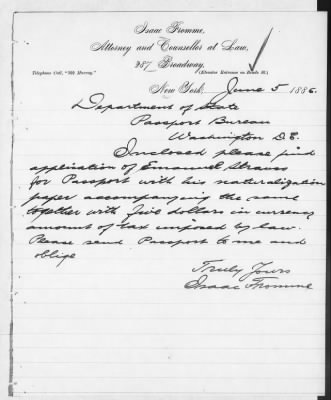 Isaac Fromme,
Attorney and Counsellor at Law,
287 Broadway,
Telephone Call, "599 Murray." (Elevator Entrance on Reade St.)
New York, June 5 1886.
Department of State
Passport Bureau
Washington D.C.
Inclosed please find
application of Emanuel Strauss
for Passport with his naturalization
paper accompanying the same
together with five dollars in currency
amount of tax imposed by law.
Please send Passport to me and
oblige
Truly Yours
Isaac Fromme